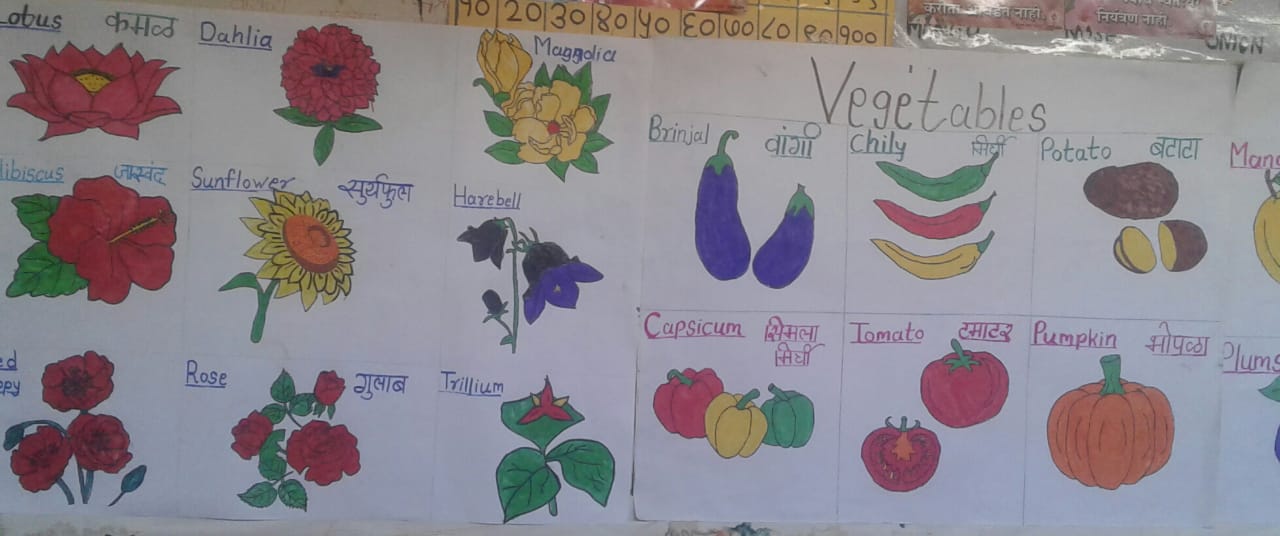 १० २० ३० ४० ५० ६० ७० ८० ९० १००
नियंत्रण नाही.
Lobus कमळ
Dahlia
Maggolia
Hibiscus जास्वंद
Sunflower सुर्यफुल
Harebell
Rose गुलाब
Trillium
Vegetables
Brinjal वांगी
Chily मिर्ची
Potato बटाटा
Capsicum सिमला
मिर्ची
Tomato टमाटर
Pumpkin भोपळा
Mang
Plums